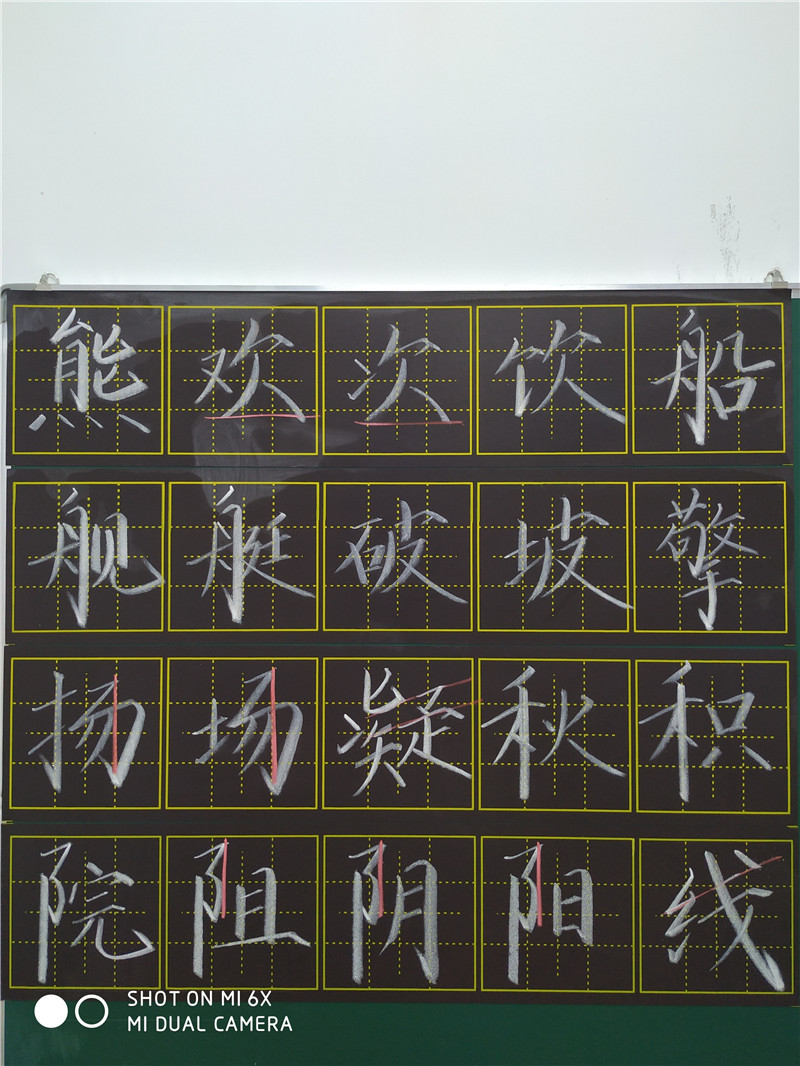 熊欢次饮船
舰艇破坡擎
扬场凝秋积
院阻阴阳线
SHOT ON MI 6X
MI DUAL CAMERA